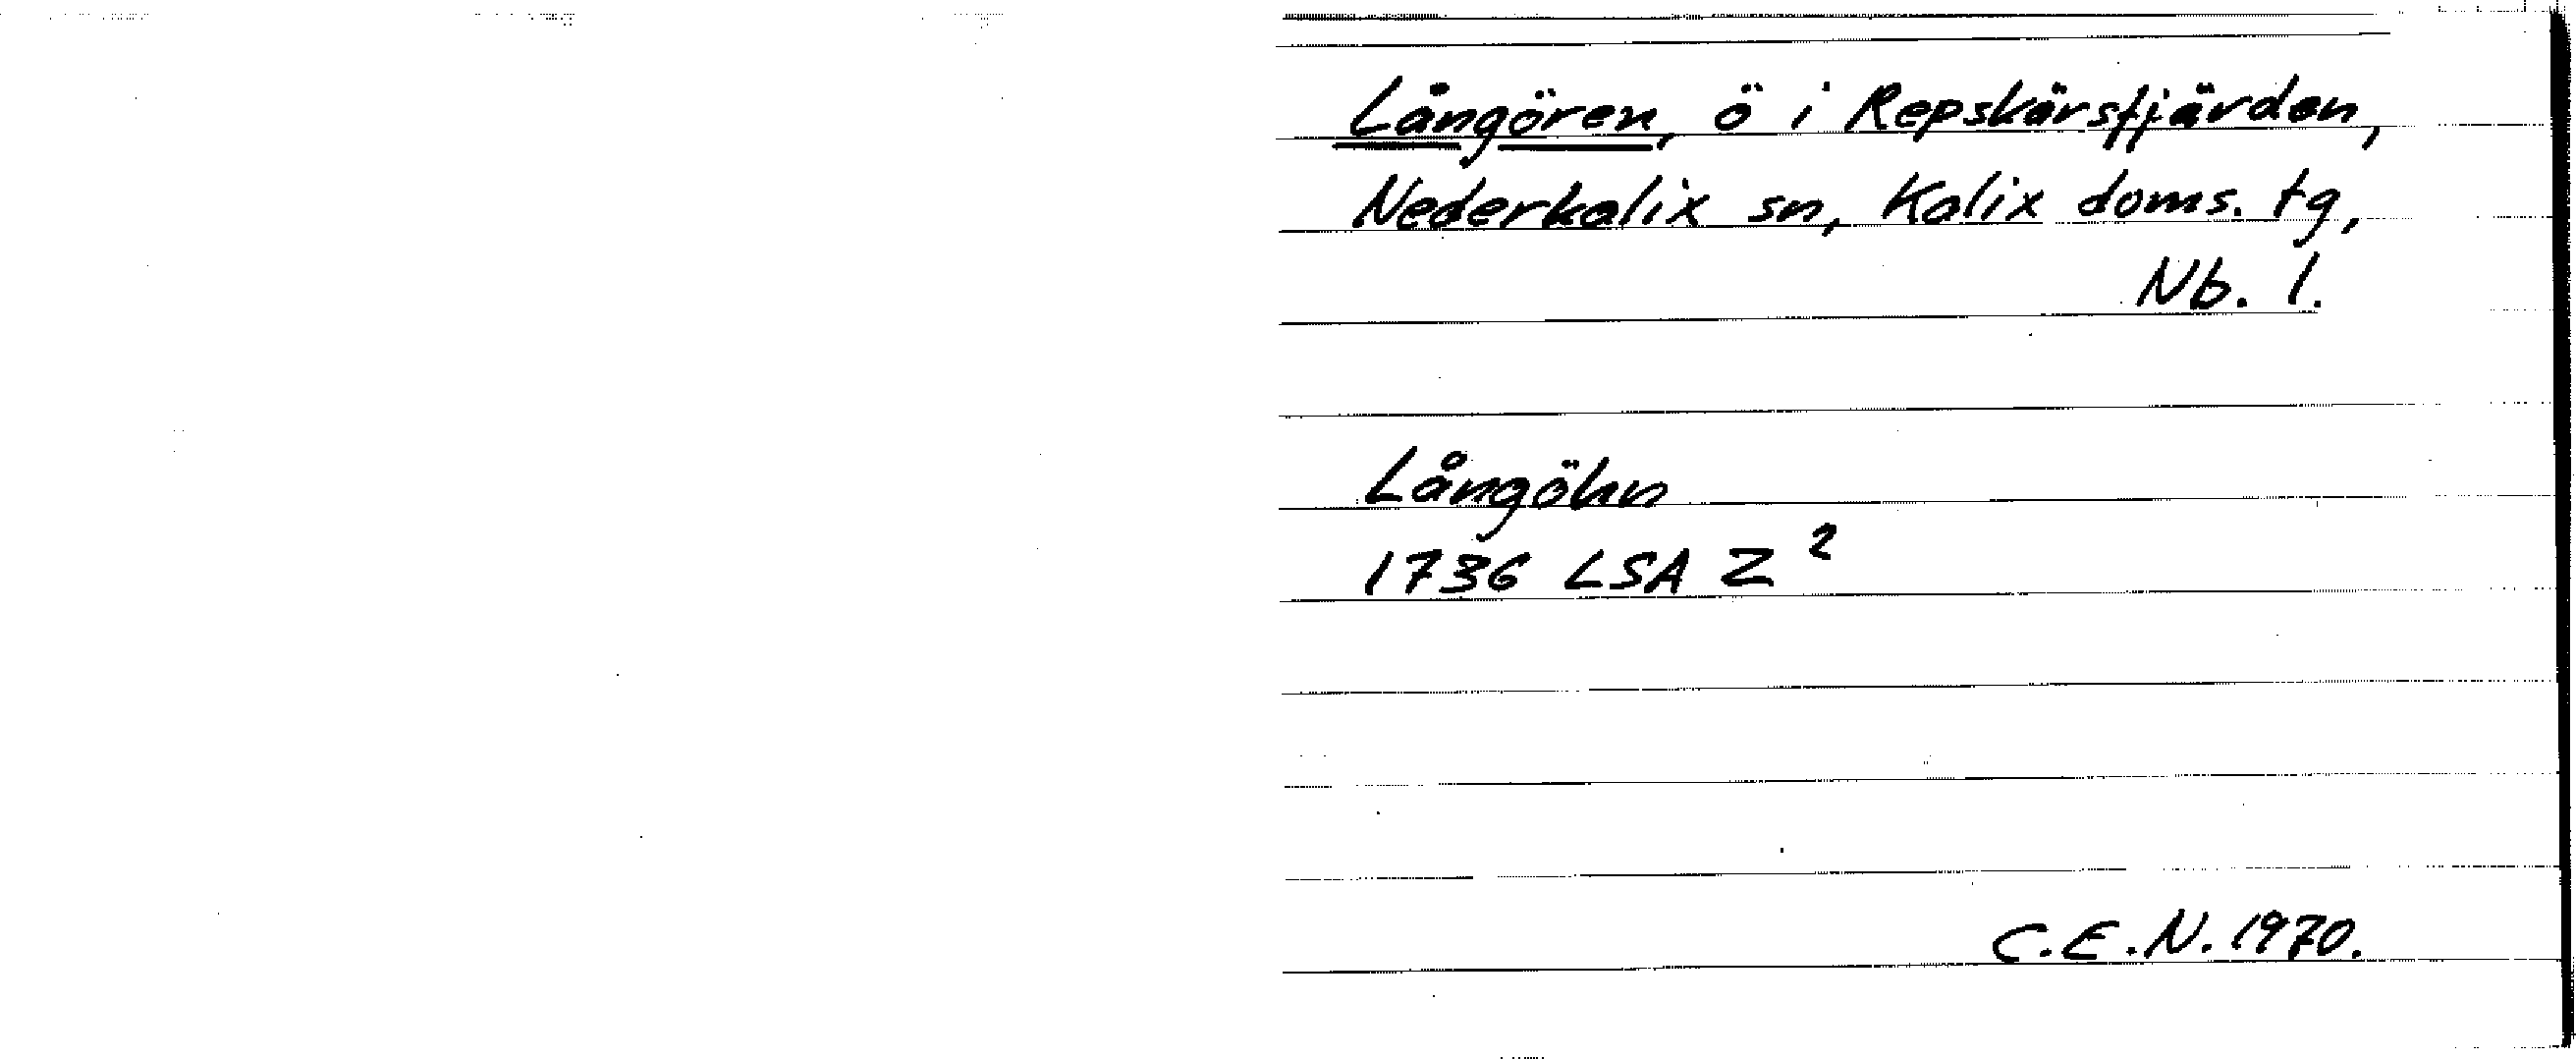 Långören, ö i Repskärsfjärden,
Nederkalix sn, Kalix doms. tg,
Nb. l.
Långöhn
1736 LSA Z²
C.E.N. 1970.